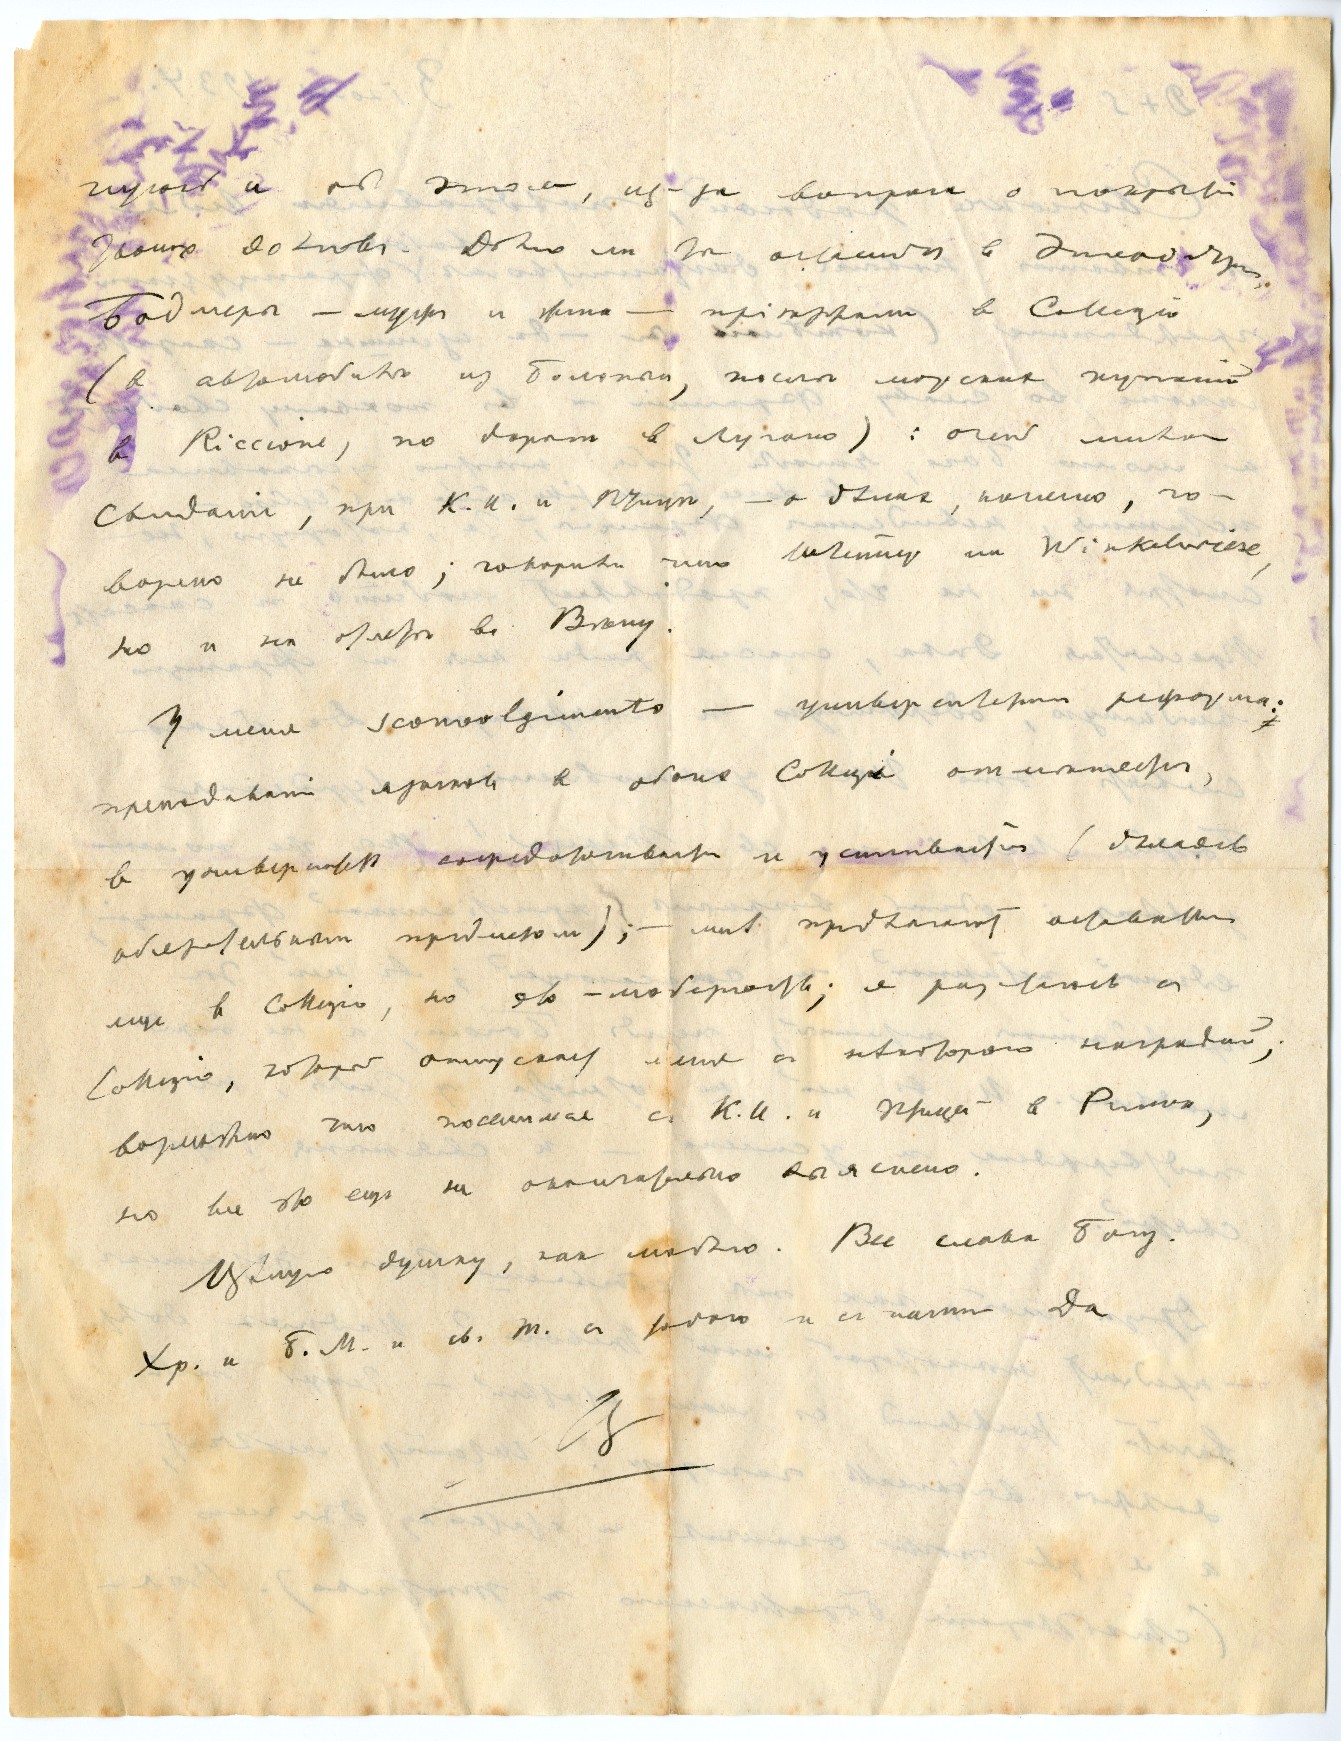 и об этом, из-за вопроса о покрытіи
твоих долгов. Долго ли ты останешься в
Бодмеры — муж и жена — пріезжали в Collegio
(в автомобиле из Болоньи, после морских купаній
в Riccione, по дороге в Лугано): очень милое
свиданіе, при К.И. и — о делах, конечно, го-
ворено не было; говорили что Шлецер на Winkelwiese,
но и он уезжает в Вену.
У меня sconvolgimento — университетская реформа:
преподаваніе языков в обоих Collegi отменяется,
в университете сосредоточивается и усиливается (делаясь
обязательным предметом); — мне предлагают оставаться
еще в Collegio, но я разстаюсь с
Collegio, который отпускает меня с некоторого наградой;
возможно что поселимся с К.И. и в Риме,
но все это еще не окончательно выяснено.
Целую душку, как люблю. Все слава Богу.
Хр. и Б.М. и св. Т. с тобою и с нами Да